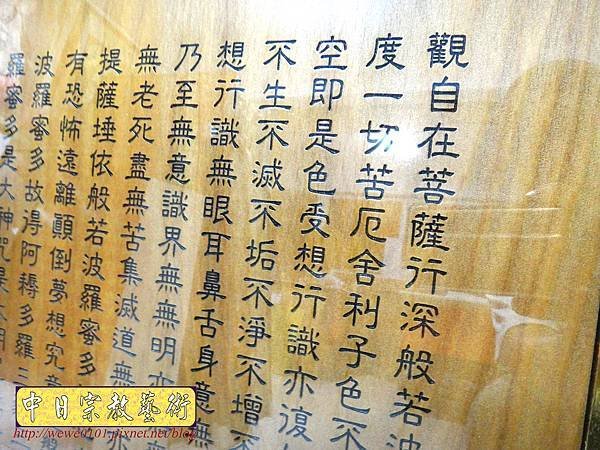 觀自在菩薩行深般若波
度一切苦厄舍利子色不
空即是色受想行識亦復
不生不滅不垢不淨不增不
想行識無眼耳鼻舌身意無
乃至無意識界無無明亦
無老死盡無苦集滅道無
提薩埵依般若波羅蜜多
有恐怖遠離顛倒夢想究竟
波羅蜜多故得阿耨多羅三
羅蜜多是大神咒是大明
中日宗教藝術
http://wewe0101.pixnet.net/blog